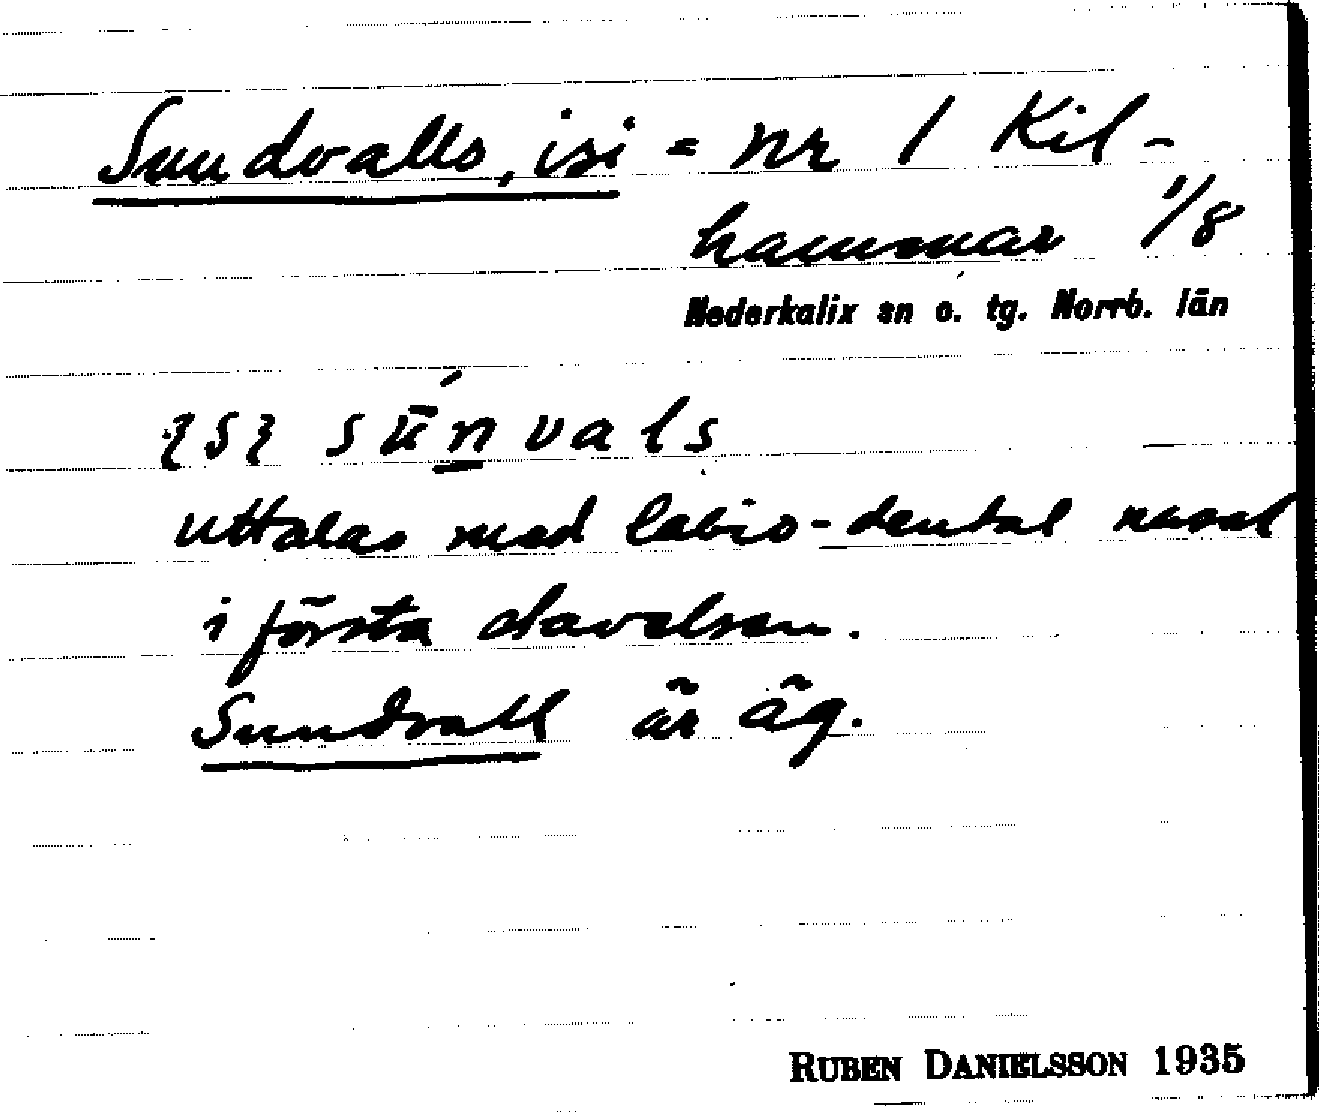 Sundvalls, isi = nr 1 Kil-
hammar 1/8
Nederkalix sn o. tg. Norrb. län
{S} sū́n̲vals
uttalas med labio-dental nasal
i första stavelsen.
Sundvall är äg.
RUBEN DANIELSSON 1935